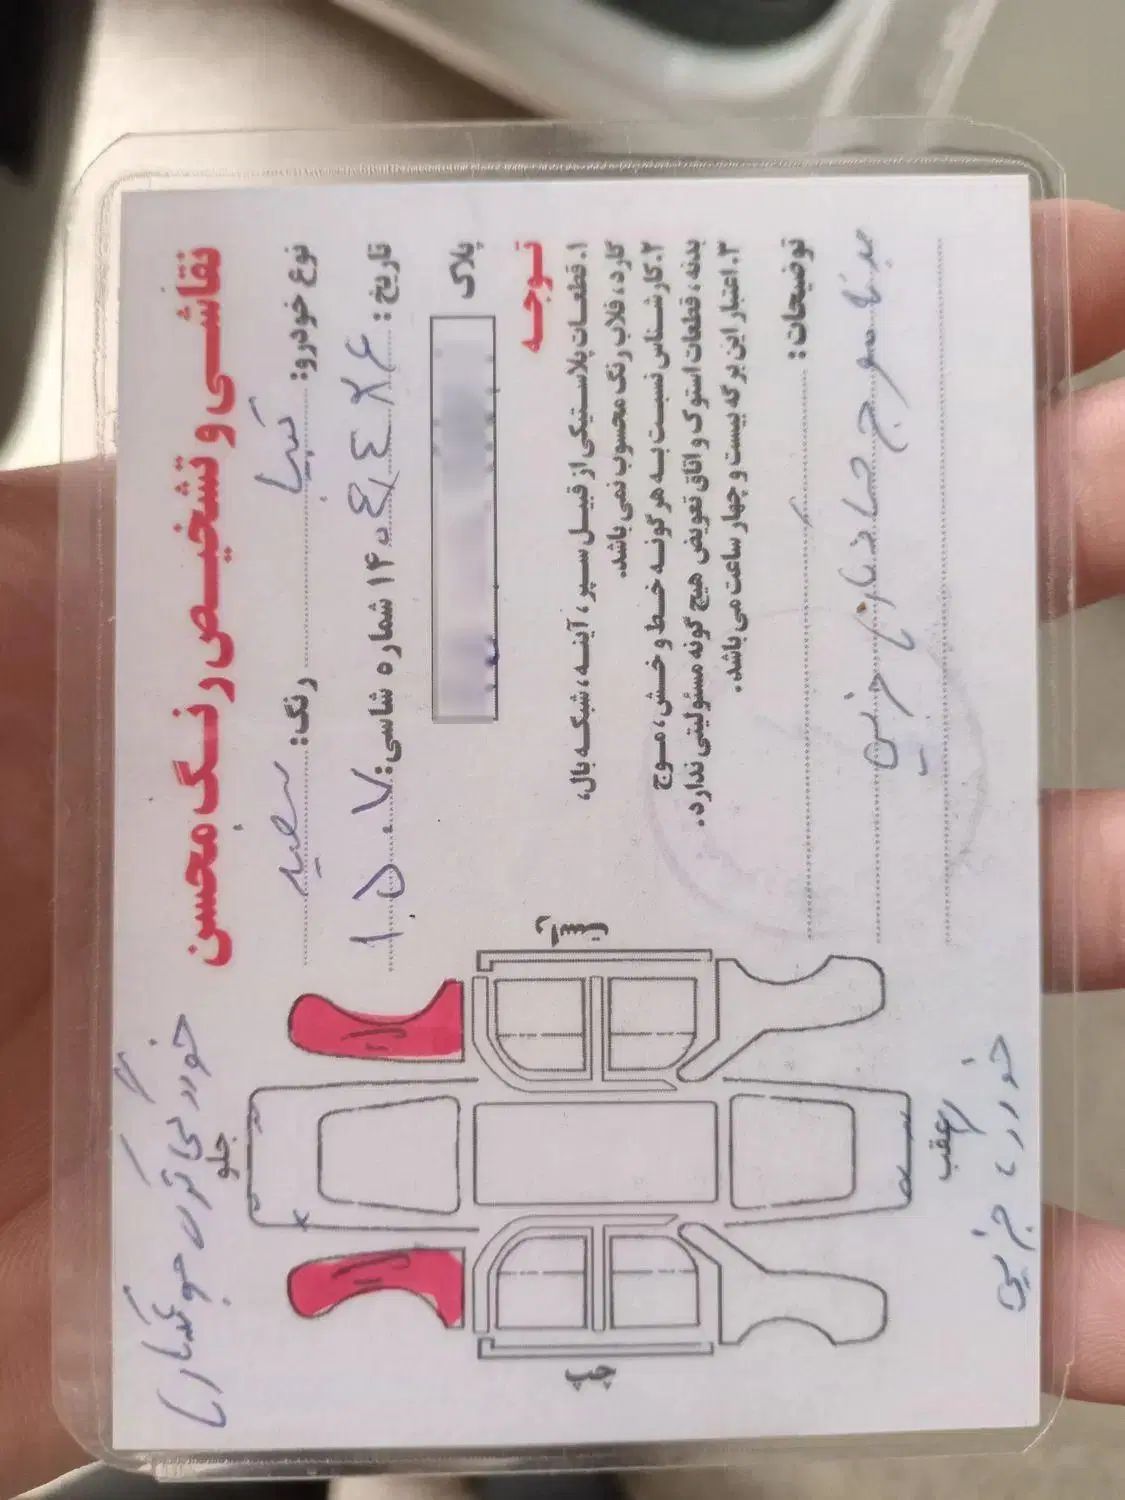 نقاشی و تشخیص رنگ محسن
نوع خودرو: تیبا رنگ: سفید
تاریخ: ۱۴۰۴/۴/۲۶ شماره شاسی: ۱۰۵۰۷
پلاک
توجه
۱. قطعات پلاستیکی از قبیل سپر، آینه، شبکه بال،
کارد، قلاب رنگ محسوب نمی باشد.
۲. کارشناس نسبت به هر گونه خط و خش، موج
بدنه، قطعات استوک و اتاق تعویض هیچ گونه مسئولیتی ندارد.
۳. اعتبار این برگه بیست و چهار ساعت می باشد.
توضیحات:
بدنه موج جزیی
خوردگی جوشکاری
جلو
راست
چپ
عقب
خوردگی جزیی